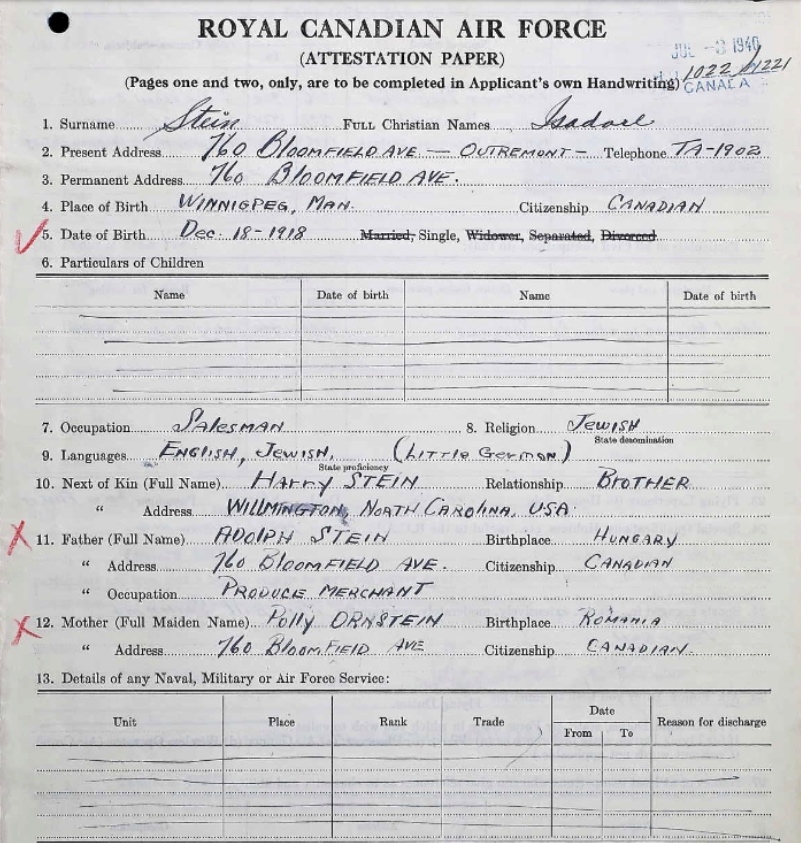 ROYAL CANADIAN AIR FORCE
(ATTESTATION PAPER)
JUL -3 1940
(Pages one and two, only, are to be completed in Applicant's own Handwriting)
1022
CANADA
1. Surname Stein FULL Christian Names Isadore
2. Present Address 760 BLOOMFIELD AVE — OUTREMONT — Telephone TA-1902
3. Permanent Address 760 BLOOMFIELD AVE.
4. Place of Birth WINNIGPEG, MAN. Citizenship CANADIAN
5. Date of Birth Dec. 18-1918 Married, Single, Widower, Separated, Divorced
6. Particulars of Children
Name Date of birth Name Date of birth
7. Occupation SALESMAN 8. Religion JEWISH
State denomination
9. Languages ENGLISH, JEWISH, (LITTLE GERMAN)
State proficiency
10. Next of Kin (Full Name) HARRY STEIN Relationship BROTHER
" Address WILLMINGTON, NORTH CAROLINA, USA.
11. Father (Full Name) ADOLPH STEIN Birthplace HUNGARY
" Address 760 BLOOMFIELD AVE. Citizenship CANADIAN
" Occupation PRODUCE MERCHANT
12. Mother (Full Maiden Name) Polly ORNSTEIN Birthplace ROMANIA
" Address 760 BLOOMFIELD AVE Citizenship CANADIAN.
13. Details of any Naval, Military or Air Force Service:
Unit Place Rank Trade Date Reason for discharge
From To